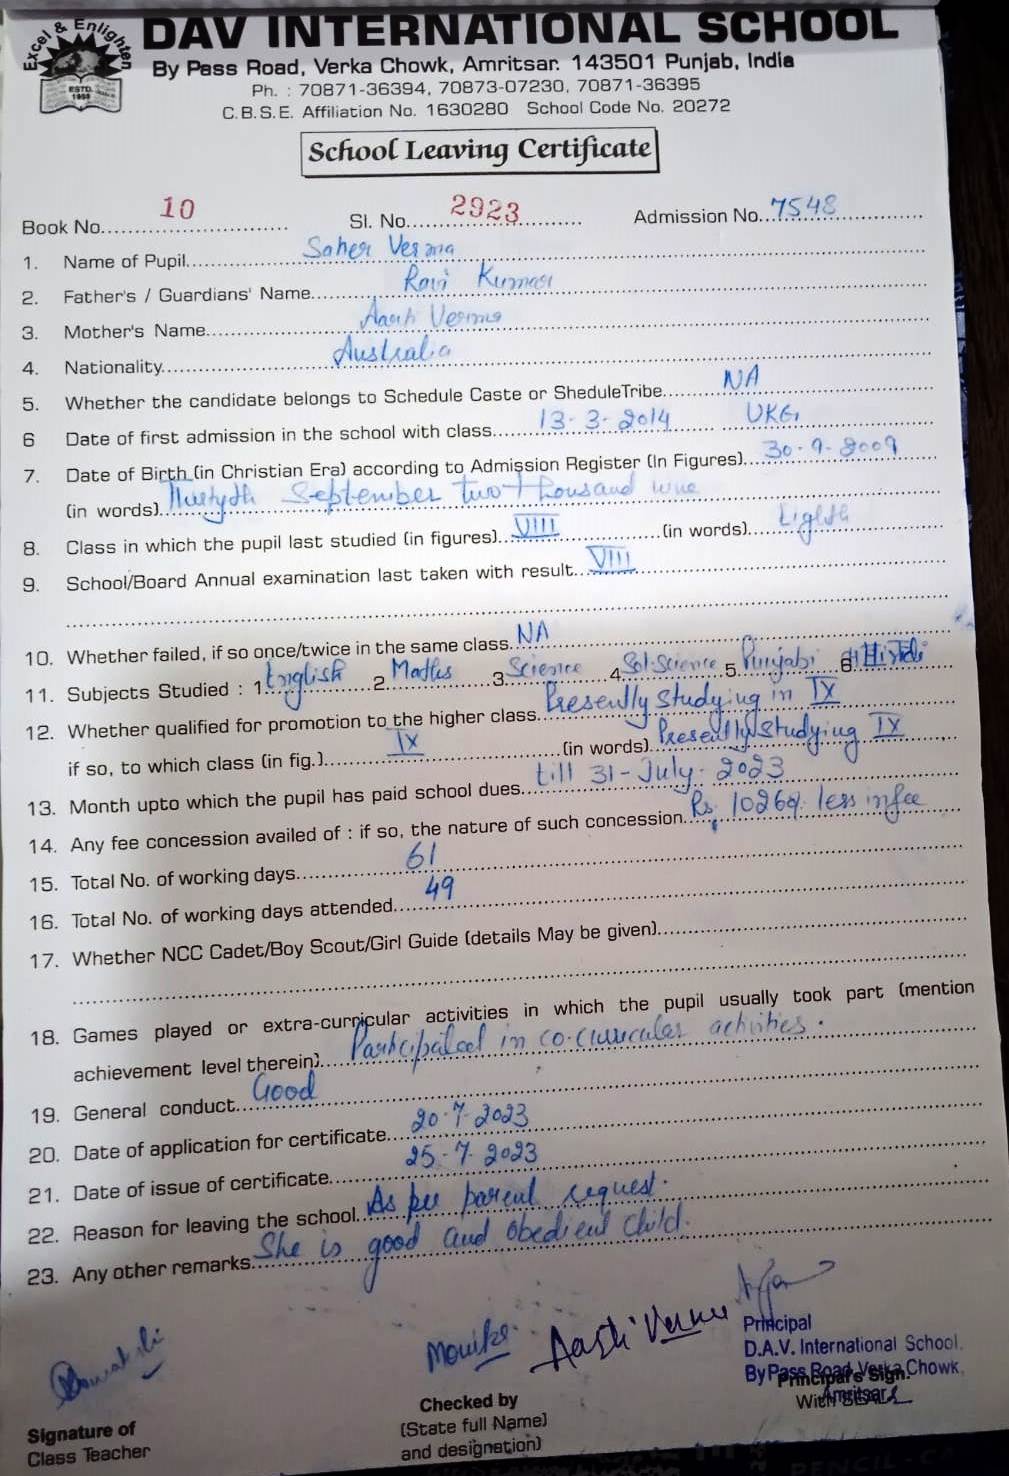 Excel & Enlighten
ESTD.
DAV INTERNATIONAL SCHOOL
By Pass Road, Verka Chowk, Amritsar. 143501 Punjab, India
Ph. : 70871-36394, 70873-07230, 70871-36395
C.B.S.E. Affiliation No. 1630280 School Code No. 20272
School Leaving Certificate
Book No. 10 Sl. No. 2923 Admission No. 7548
1. Name of Pupil Saher Verma
2. Father's / Guardians' Name Ravi Kumar
3. Mother's Name Aarti Verma
4. Nationality Australia
5. Whether the candidate belongs to Schedule Caste or SheduleTribe NA
6 Date of first admission in the school with class 13-3-2014 UKG
7. Date of Birth (in Christian Era) according to Admission Register (In Figures) 30-9-2009
(in words) September two thousand nine
8. Class in which the pupil last studied (in figures) VIII (in words) Eighth
9. School/Board Annual examination last taken with result VIII
10. Whether failed, if so once/twice in the same class NA
11. Subjects Studied : 1 English 2 Maths 3 Science 4 Sol. Science 5 Punjabi 6 Hindi
12. Whether qualified for promotion to the higher class Presently studying in IX
if so, to which class (in fig.) IX (in words) Presently studying IX
13. Month upto which the pupil has paid school dues till 31-July-2023
14. Any fee concession availed of : if so, the nature of such concession Rs. less in fee
15. Total No. of working days 61
16. Total No. of working days attended 49
17. Whether NCC Cadet/Boy Scout/Girl Guide (details May be given)
18. Games played or extra-curricular activities in which the pupil usually took part (mention
achievement level therein) Participated in co-curricular activities.
19. General conduct Good
20. Date of application for certificate 20-7-2023
21. Date of issue of certificate 25-7-2023
22. Reason for leaving the school As per parent request.
23. Any other remarks She is good and obedient child.
Monika Aarti Verma
Principal
D.A.V. International School.
By Pass Road, Verka Chowk,
Amritsar
Principal's Sign.
With SEAL
Signature of
Class Teacher
Checked by
(State full Name)
and designation)